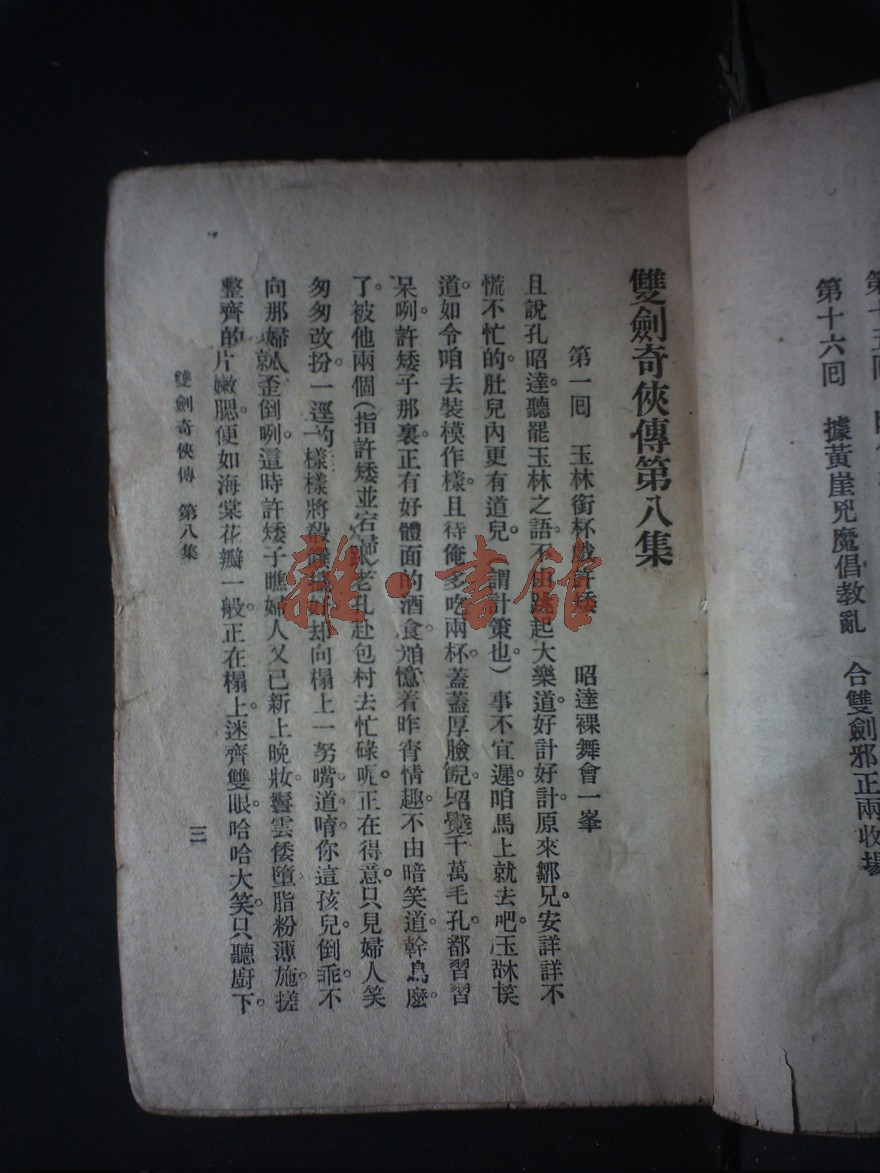 第十六囘　據黃崖兇魔倡教亂　合雙劍邪正兩收場
雙劍奇俠傳第八集
第一囘　玉林銜杯戲許矮　昭達裸舞會一峯
且說孔昭達。聽罷玉林之語。不由跳起大樂道。好計好計。原來鄒兄。安詳詳不
慌不忙的。肚兒內更有道兒。(謂計策也)事不宜遲。咱馬上就去吧。玉林笑
道。如今咱去裝模作樣。且待俺多吃兩杯。蓋蓋厚臉。昭覺千萬毛孔。都習習
呆咧。許矮子那裏正有好體面的酒食。憶着昨宵情趣。不由暗笑道。幹鳥麽。
了。被他兩個(指許矮並老孔赴包村去忙碌呃。正在得意。只見婦人笑
匆匆改扮。一逕的一樣樣將殺却向榻上一努嘴道。唷你這孩兒。倒乖。不
向那婦人就歪倒咧。這時許矮子瞧婦人又已新上晚妝。鬟雲倭墮。脂粉薄施。搓
整齊的片嫩腮。便如海棠花瓣一般。正在榻上。迷齊雙眼。哈哈大笑。只聽廚下。
雙劍奇俠傳　第八集
三
雜·書館